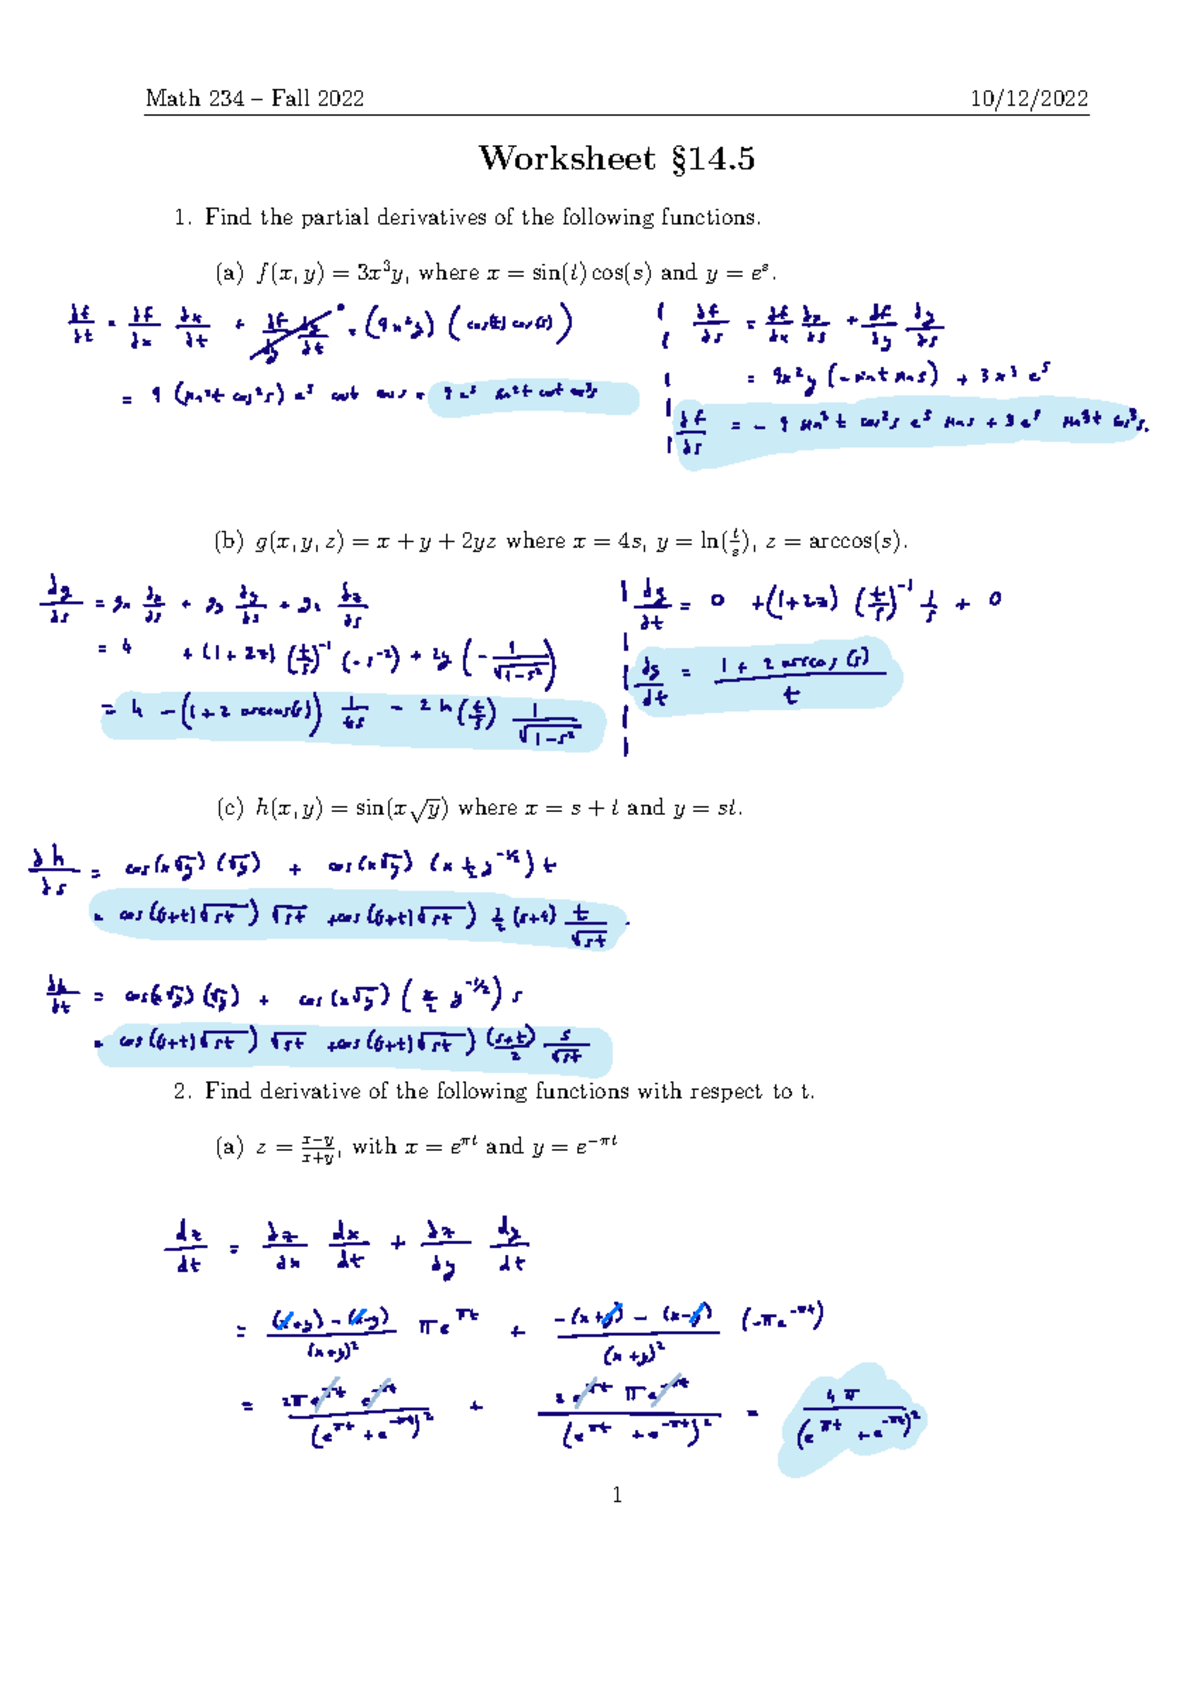 Math 234 – Fall 2022 10/12/2022
Worksheet §14.5
1. Find the partial derivatives of the following functions.
(a) f(x, y) = 3x³y, where x = sin(t) cos(s) and y = eˢ.
∂f/∂t = ∂f/∂x ∂x/∂t + ∂f/∂y ∂y/∂t = (9x²y) (cos(t) cos(s))
= 9 (sin²t cos²s) eˢ cost coss = 9 eˢ sin²t cost cos³s
∂f/∂s = ∂f/∂x ∂x/∂s + ∂f/∂y ∂y/∂s
= 9x²y (-sint sins) + 3x³ eˢ
∂f/∂s = - 9 sin³t cos²s eˢ sins + 3eˢ sin³t cos³s.
(b) g(x, y, z) = x + y + 2yz where x = 4s, y = ln(t/s), z = arccos(s).
∂g/∂s = gₓ ∂x/∂s + g_y ∂y/∂s + g_z ∂z/∂s
= 4 + (1 + 2z) (t/s)⁻¹ (-s⁻²) + 2y (- 1/√(1-s²))
= 4 - (1 + 2 arccos(s)) 1/ts - 2 ln(t/s) 1/√(1-s²)
∂g/∂t = 0 + (1+2z) (t/s)⁻¹ 1/s + 0
∂g/∂t = (1 + 2 arccos(s))/t
(c) h(x, y) = sin(x√y) where x = s + t and y = st.
∂h/∂s = cos(x√y) (√y) + cos(x√y) (x ½ y^(-1/2)) t
= cos((s+t)√st) √st + cos((s+t)√st) ½ (s+t) t/√st.
∂h/∂t = cos(x√y) (√y) + cos(x√y) (x/2 y^(-1/2)) s
= cos((s+t)√st) √st + cos((s+t)√st) (s+t)/2 s/√st
2. Find derivative of the following functions with respect to t.
(a) z = (x−y)/(x+y), with x = e^(πt) and y = e^(−πt)
dz/dt = ∂z/∂x dx/dt + ∂z/∂y dy/dt
= ((x+y) - (x-y))/(x+y)² πe^(πt) + (-(x+y) - (x-y))/(x+y)² (-πe^(-πt))
= (2πe^(πt) e^(-πt))/(e^(πt) + e^(-πt))² + (2e^(πt) πe^(-πt))/(e^(πt) + e^(-πt))² = 4π/(e^(πt) + e^(-πt))²
1